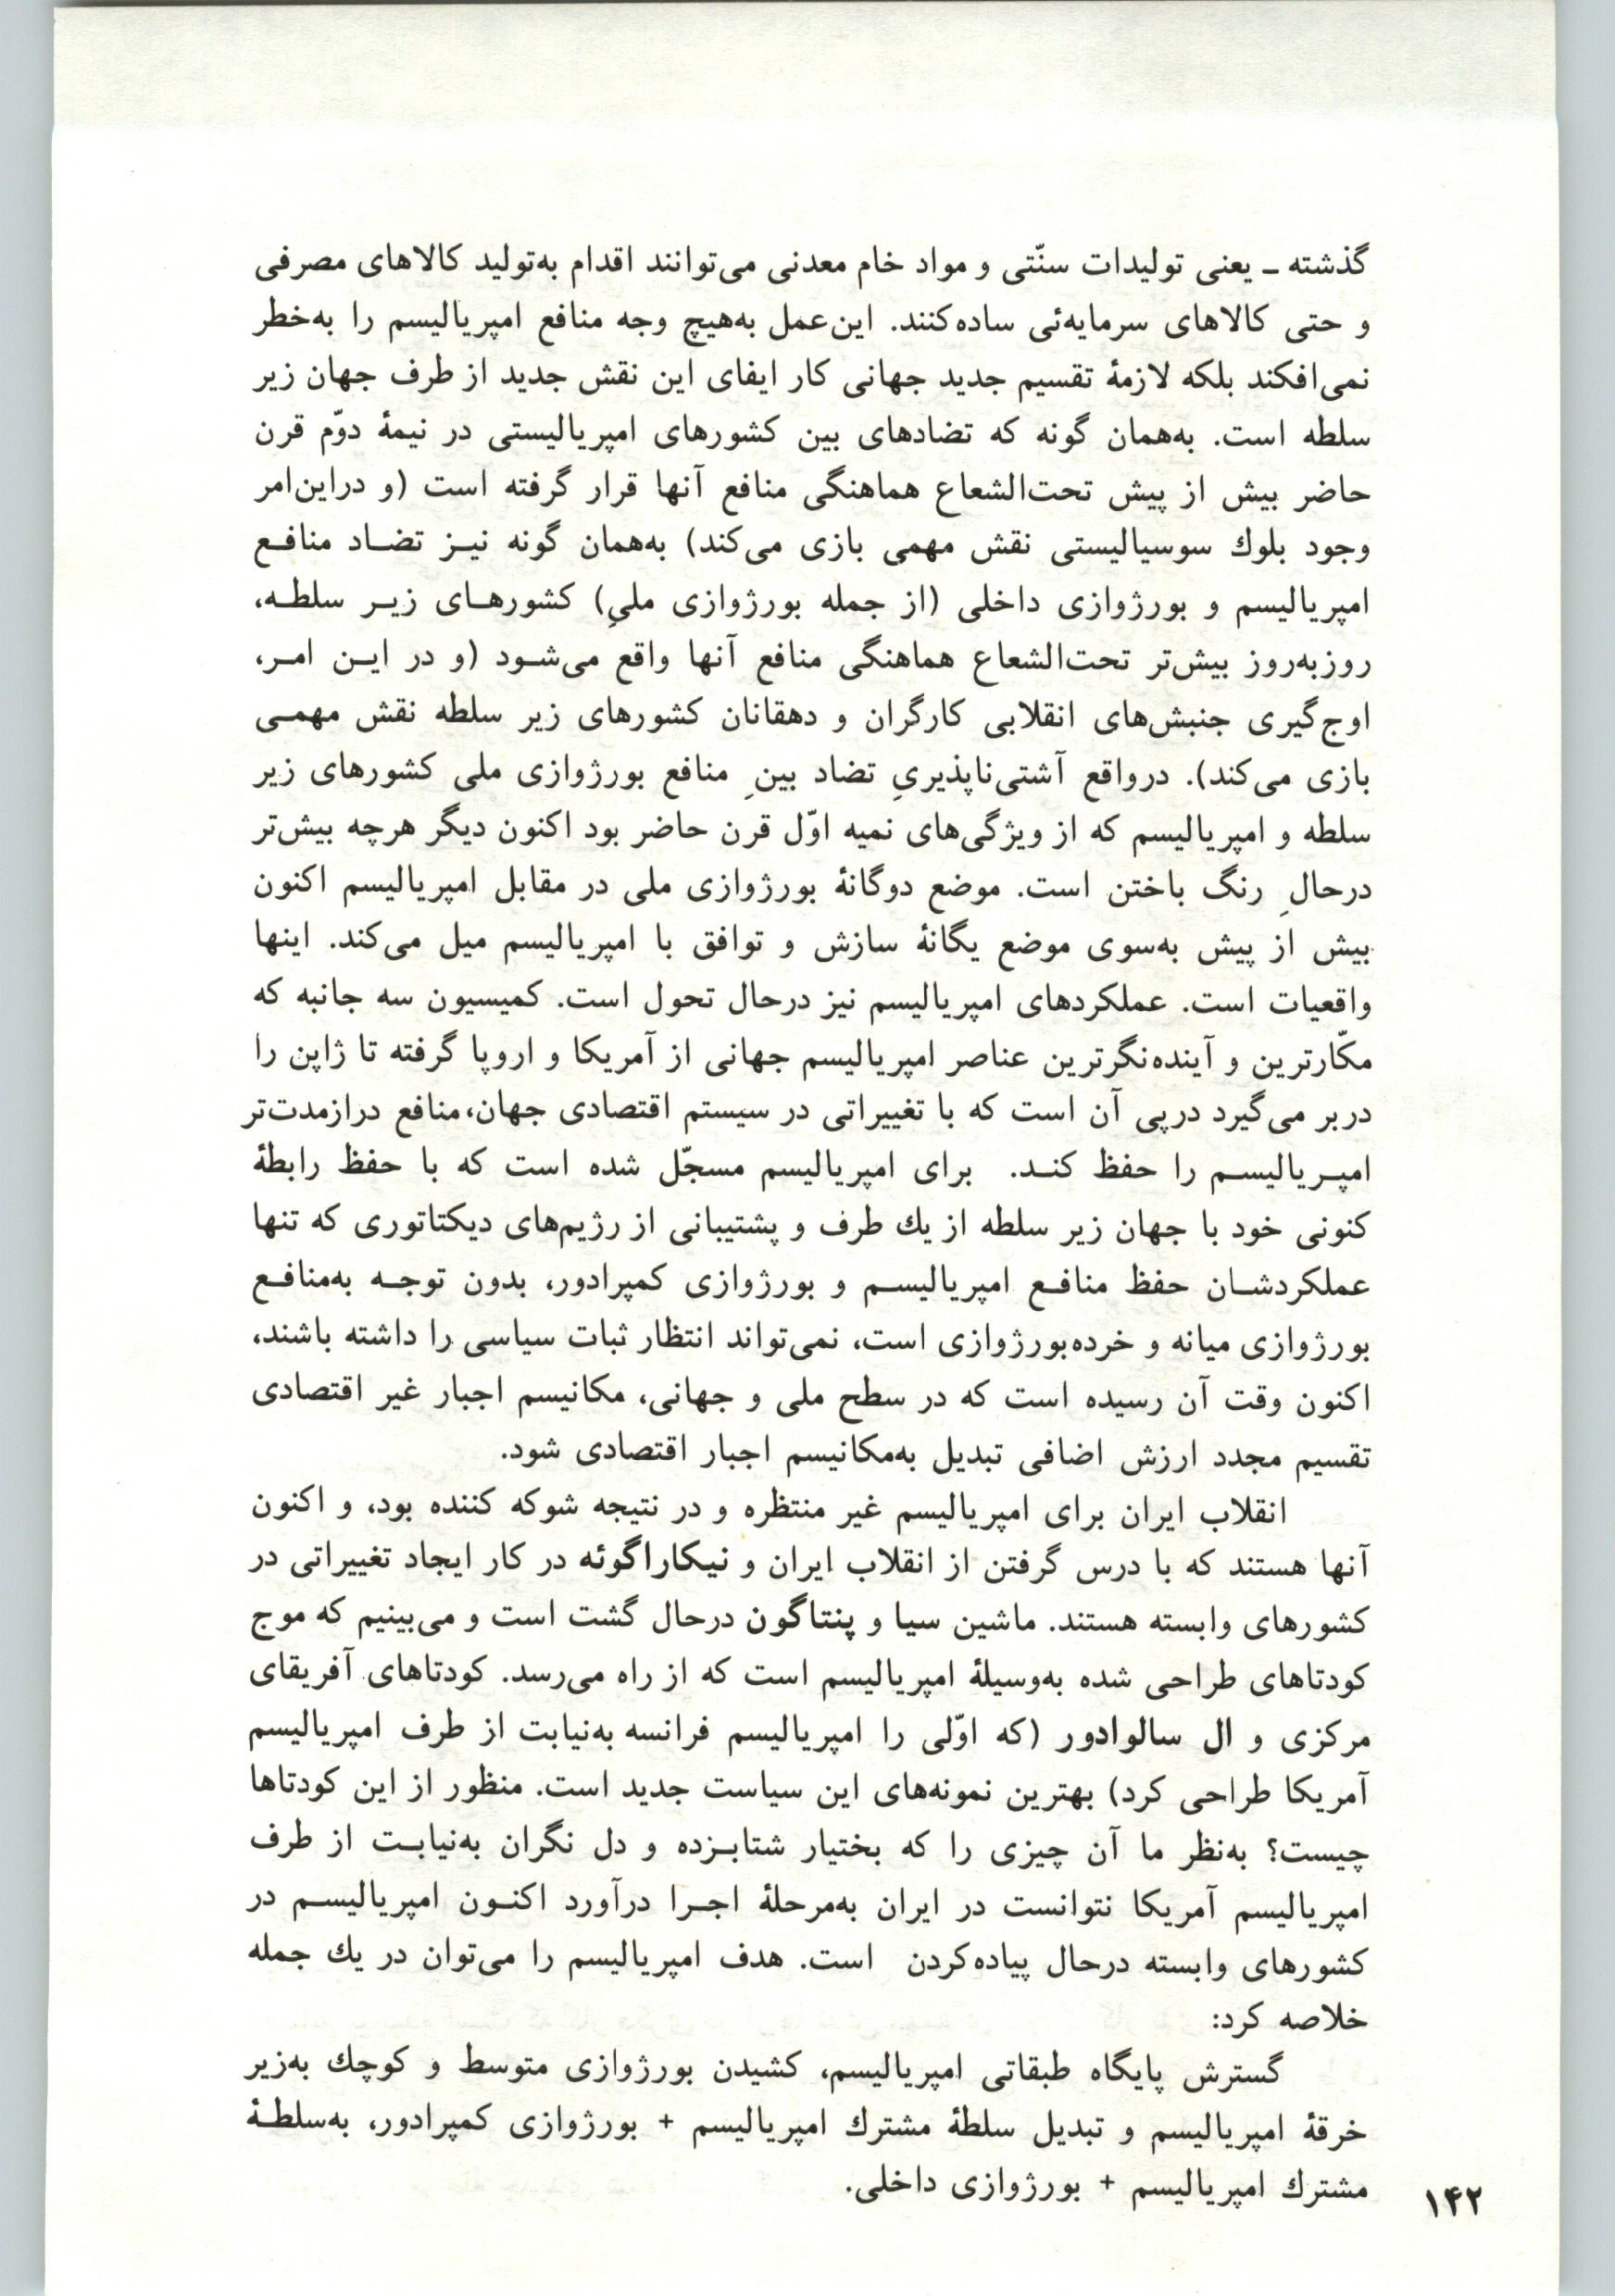 گذشته ـ یعنی تولیدات سنّتی و مواد خام معدنی می‌توانند اقدام به‌تولید کالاهای مصرفی
و حتی کالاهای سرمایه‌ئی ساده‌کنند. این‌عمل به‌هیچ وجه منافع امپریالیسم را به‌خطر
نمی‌افکند بلکه لازمهٔ تقسیم جدید جهانی کار ایفای این نقش جدید از طرف جهان زیر
سلطه است. به‌همان گونه که تضادهای بین کشورهای امپریالیستی در نیمهٔ دوّم قرن
حاضر بیش از پیش تحت‌الشعاع هماهنگی منافع آنها قرار گرفته است (و دراین‌امر
وجود بلوك سوسیالیستی نقش مهمی بازی می‌کند) به‌همان گونه نیـز تضـاد منافـع
امپریالیسم و بورژوازی داخلی (از جمله بورژوازی ملیِ) کشورهـای زیـر سلطـه،
روزبه‌روز بیش‌تر تحت‌الشعاع هماهنگی منافع آنها واقع می‌شـود (و در ایـن امـر،
اوج‌گیری جنبش‌های انقلابی کارگران و دهقانان کشورهای زیر سلطه نقش مهمـی
بازی می‌کند). درواقع آشتی‌ناپذیریِ تضاد بینِ منافع بورژوازی ملی کشورهای زیر
سلطه و امپریالیسم که از ویژگی‌های نمیه اوّل قرن حاضر بود اکنون دیگر هرچه بیش‌تر
درحالِ رنگ باختن است. موضع دوگانهٔ بورژوازی ملی در مقابل امپریالیسم اکنون
بیش از پیش به‌سوی موضع یگانهٔ سازش و توافق با امپریالیسم میل می‌کند. اینها
واقعیات است. عملکردهای امپریالیسم نیز درحال تحول است. کمیسیون سه جانبه که
مکّارترین و آینده‌نگرترین عناصر امپریالیسم جهانی از آمریکا و اروپا گرفته تا ژاپن را
دربر می‌گیرد درپی آن است که با تغییراتی در سیستم اقتصادی جهان،منافع درازمدت‌تر
امپـریالیسـم را حفظ کنـد. برای امپریالیسم مسجّل شده است که با حفظ رابطهٔ
کنونی خود با جهان زیر سلطه از یك طرف و پشتیبانی از رژیم‌های دیکتاتوری که تنها
عملکردشـان حفظ منافـع امپریالیسـم و بورژوازی کمپرادور، بدون توجـه به‌منافـع
بورژوازی میانه و خرده‌بورژوازی است، نمی‌تواند انتظار ثبات سیاسی را داشته باشند،
اکنون وقت آن رسیده است که در سطح ملی و جهانی، مکانیسم اجبار غیر اقتصادی
تقسیم مجدد ارزش اضافی تبدیل به‌مکانیسم اجبار اقتصادی شود.
انقلاب ایران برای امپریالیسم غیر منتظره و در نتیجه شوکه کننده بود، و اکنون
آنها هستند که با درس گرفتن از انقلاب ایران و نیکاراگوئه در کار ایجاد تغییراتی در
کشورهای وابسته هستند. ماشین سیا و پنتاگون درحال گشت است و می‌بینیم که موج
کودتاهای طراحی شده به‌وسیلهٔ امپریالیسم است که از راه می‌رسد. کودتاهای آفریقای
مرکزی و ال سالوادور (که اوّلی را امپریالیسم فرانسه به‌نیابت از طرف امپریالیسم
آمریکا طراحی کرد) بهترین نمونه‌های این سیاست جدید است. منظور از این کودتاها
چیست؟ به‌نظر ما آن چیزی را که بختیار شتابـزده و دل نگران به‌نیابـت از طرف
امپریالیسم آمریکا نتوانست در ایران به‌مرحلهٔ اجـرا درآورد اکنـون امپریالیسـم در
کشورهای وابسته درحال پیاده‌کردن است. هدف امپریالیسم را می‌توان در یك جمله
خلاصه کرد:
گسترش پایگاه طبقاتی امپریالیسم، کشیدن بورژوازی متوسط و کوچك به‌زیر
خرقهٔ امپریالیسم و تبدیل سلطهٔ مشترك امپریالیسم + بورژوازی کمپرادور، به‌سلطـهٔ
مشترك امپریالیسم + بورژوازی داخلی.
۱۴۲